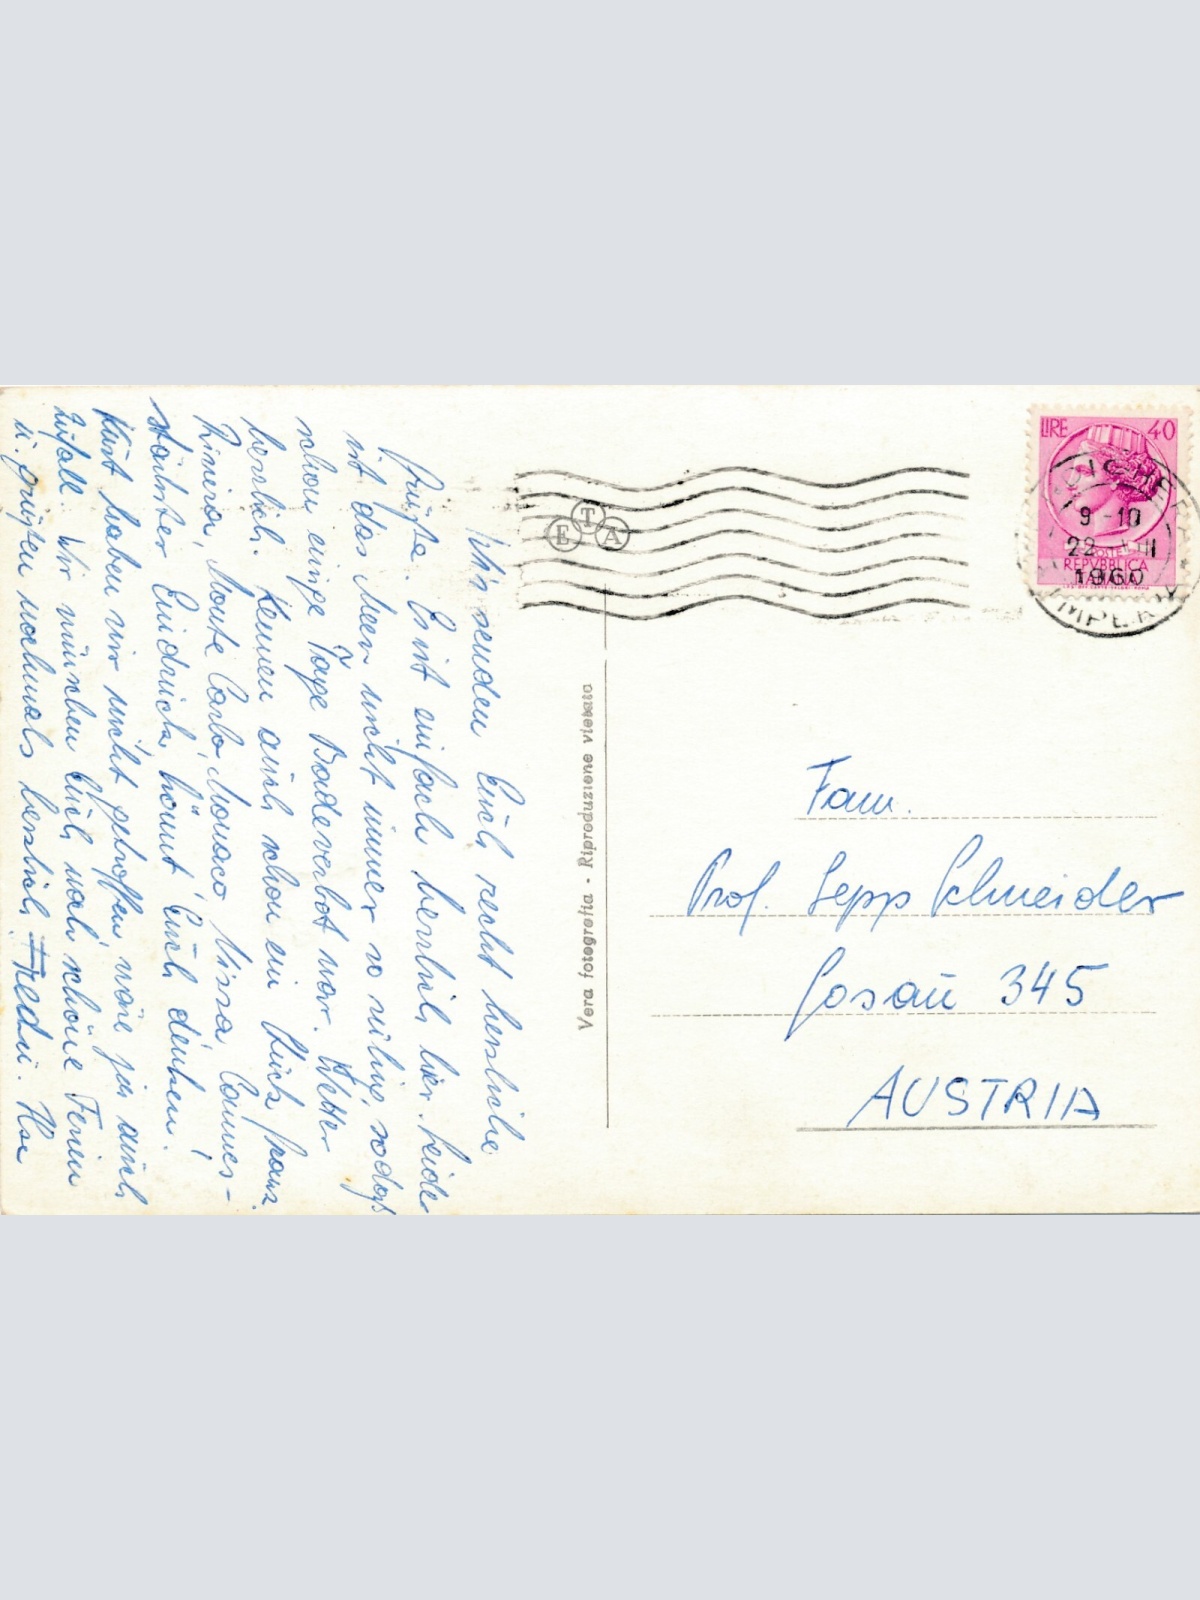 Wir senden Euch recht herzliche
Grüße. Es ist einfach herrlich hier. Leider
ist das Meer nicht immer so ruhig, sodaß
schon einige Tage Badeverbot war. Wetter
herrlich. Kennen auch schon ein Stück franz.
Riviera, Monte Carlo, Monaco, Nizza, Cannes -
stärkster Eindruck, könnt Euch denken!
Kurt haben wir nicht getroffen, wäre ja auch
Zufall. Wir wünschen Euch noch schöne Ferien
u. grüßen nochmals herzlich, Fredu. Ilse
ETA
Vera fotografia - Riproduzione vietata
LIRE 40
POSTE
REPVBBLICA
ITALIANA
9-10
22 VIII
1960
IMPERIA
Fam.
Prof. Sepp Schneider
Gosau 345
AUSTRIA